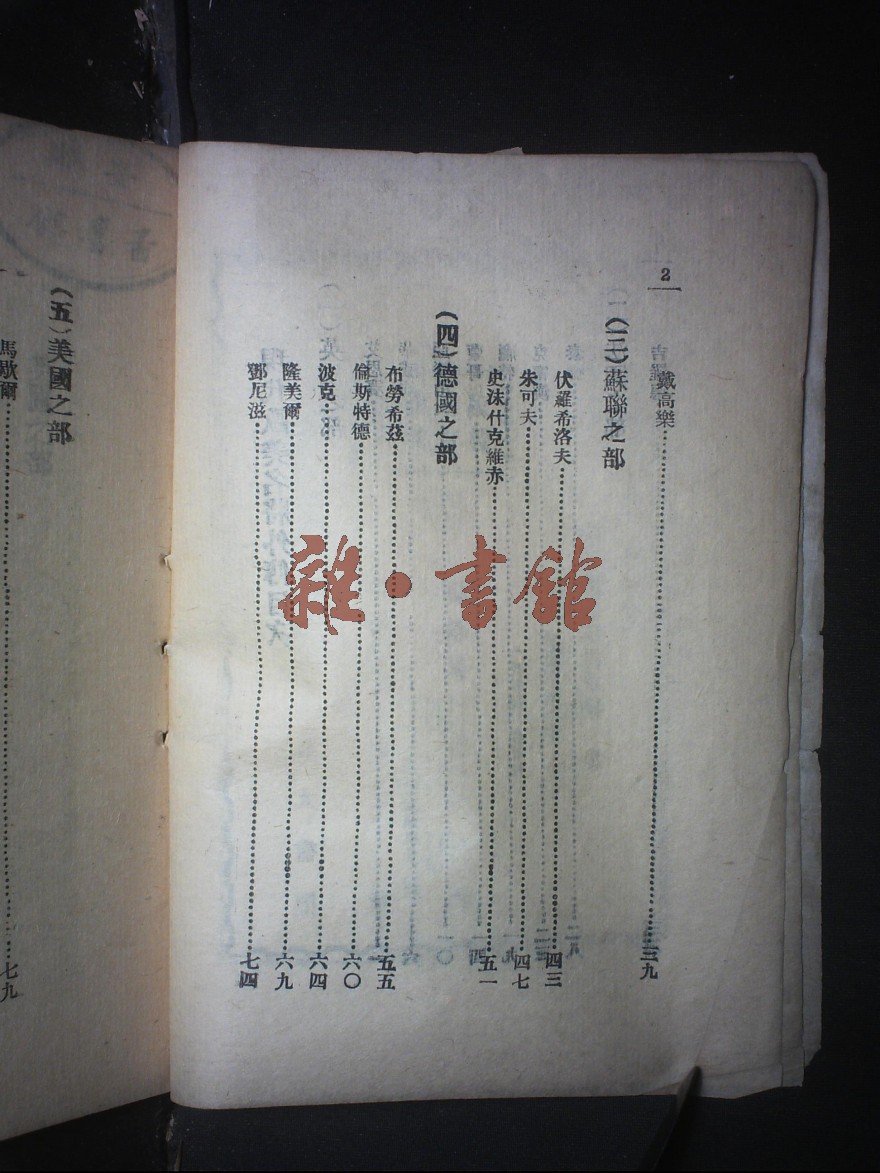 2
戴高樂三九
(三)蘇聯之部
伏羅希洛夫四三
朱可夫四七
史沫什克維赤五一
(四)德國之部
布勞希茲五五
倫斯特德六〇
波克六四
隆美爾六九
鄧尼滋七四
(五)美國之部
馬歇爾七九
雜·書館